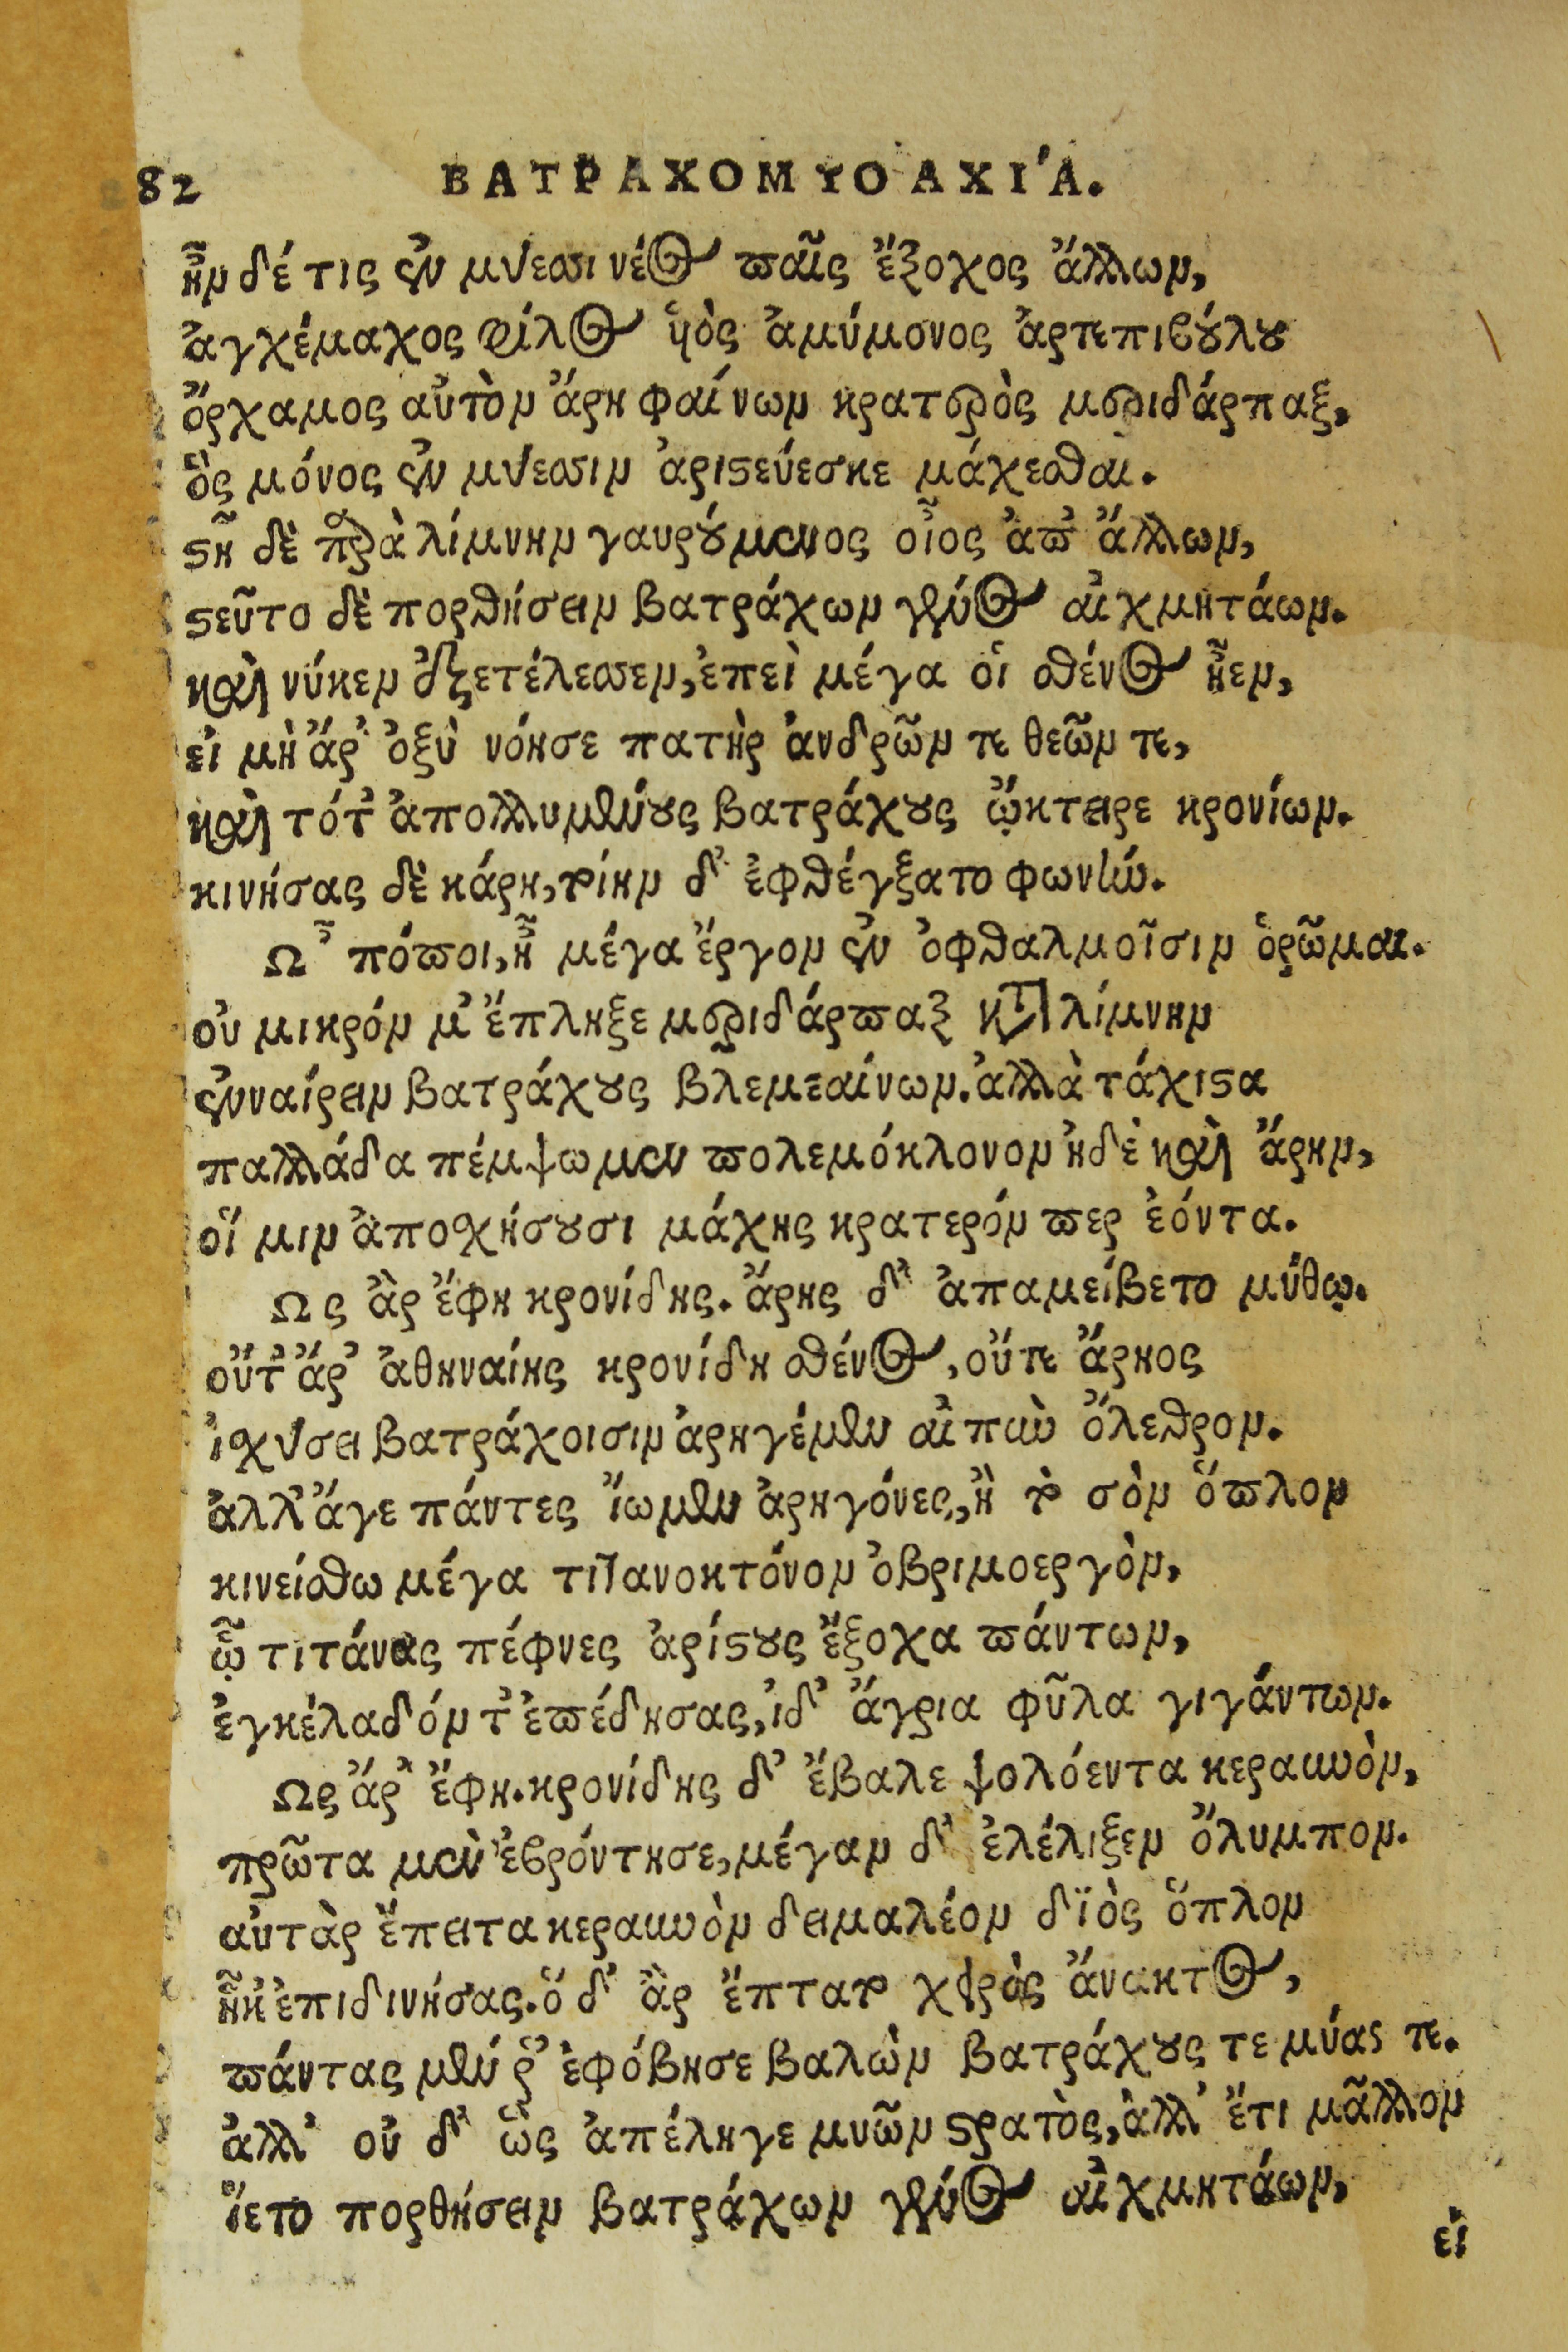 282 ΒΑΤΡΑΧΟΜΥΟΑΧΙ'Α.
ἦν δέ τις ἐν μύεσσι νέος παῖς ἔξοχος ἄλλων,
ἀγχέμαχος φίλος ὑὸς ἀμύμονος ἀρτεπιβούλου
ὄρχαμος αὐτὸν ἄρη φαίνων κρατερὸς μεριδάρπαξ,
ὃς μόνος ἐν μύεσσιν ἀριστεύεσκε μάχεσθαι.
στῆ δὲ παρὰ λίμνην γαυρούμενος οἶος ἀπ' ἄλλων,
στεῦτο δὲ πορθήσειν βατράχων γένος αἰχμητάων.
καὶ νύκεν ἐξετέλεσσεν, ἐπεὶ μέγα οἱ σθένος ἦεν,
εἰ μὴ ἄρ' ὀξὺ νόησε πατὴρ ἀνδρῶν τε θεῶν τε,
καὶ τότ' ἀπολλυμένους βατράχους ᾤκτειρε κρονίων.
κινήσας δὲ κάρη, τοίην δ' ἐφθέγξατο φωνήν.
Ω῏ πόποι, ἦ μέγα ἔργον ἐν ὀφθαλμοῖσιν ὁρῶμαι.
οὐ μικρόν μ' ἔπληξε μεριδάρπαξ κατὰ λίμνην
ἐνναίρειν βατράχους βλεμεαίνων. ἀλλὰ τάχιστα
παλλάδα πέμψωμεν πολεμόκλονον ἠδὲ καὶ ἄρην,
οἵ μιν ἀποσχήσουσι μάχης κρατερόν περ ἐόντα.
Ως ἂρ ἔφη κρονίδης. ἄρης δ' ἀπαμείβετο μύθῳ.
οὔτ' ἄρ' ἀθηναίης κρονίδη σθένος, οὔτε ἄρηος
ἰσχύσει βατράχοισιν ἀρηγέμεν αἰπὺν ὄλεθρον.
ἀλλ' ἄγε πάντες ἴωμεν ἀρηγόνες, ἢ τὸ σὸν ὅπλον
κινείσθω μέγα τιτανοκτόνον ὀβριμοεργὸν,
ᾧ τιτάνας πέφνες ἀρίστους ἔξοχα πάντων,
ἐγκέλαδόν τ' ἐπέδησας, ἰδ' ἄγρια φῦλα γιγάντων.
Ως ἄρ' ἔφη. κρονίδης δ' ἔβαλε ψολόεντα κεραυνὸν,
πρῶτα μὲν ἐβρόντησε, μέγαν δ' ἐλέλιξεν ὄλυμπον.
αὐτὰρ ἔπειτα κεραυνὸν δειμαλέον δϊὸς ὅπλον
ἧκ' ἐπιδινήσας. ὅ δ' ἂρ ἔπτατο χειρὸς ἄνακτος,
πάντας μέν ῥ' ἐφόβησε βαλὼν βατράχους τε μύας τε.
ἀλλ' οὐ δ' ὣς ἀπέληγε μυῶν στρατὸς, ἀλλ' ἔτι μᾶλλον
ἵετο πορθήσειν βατράχων γένος αἰχμητάων,
εἰ